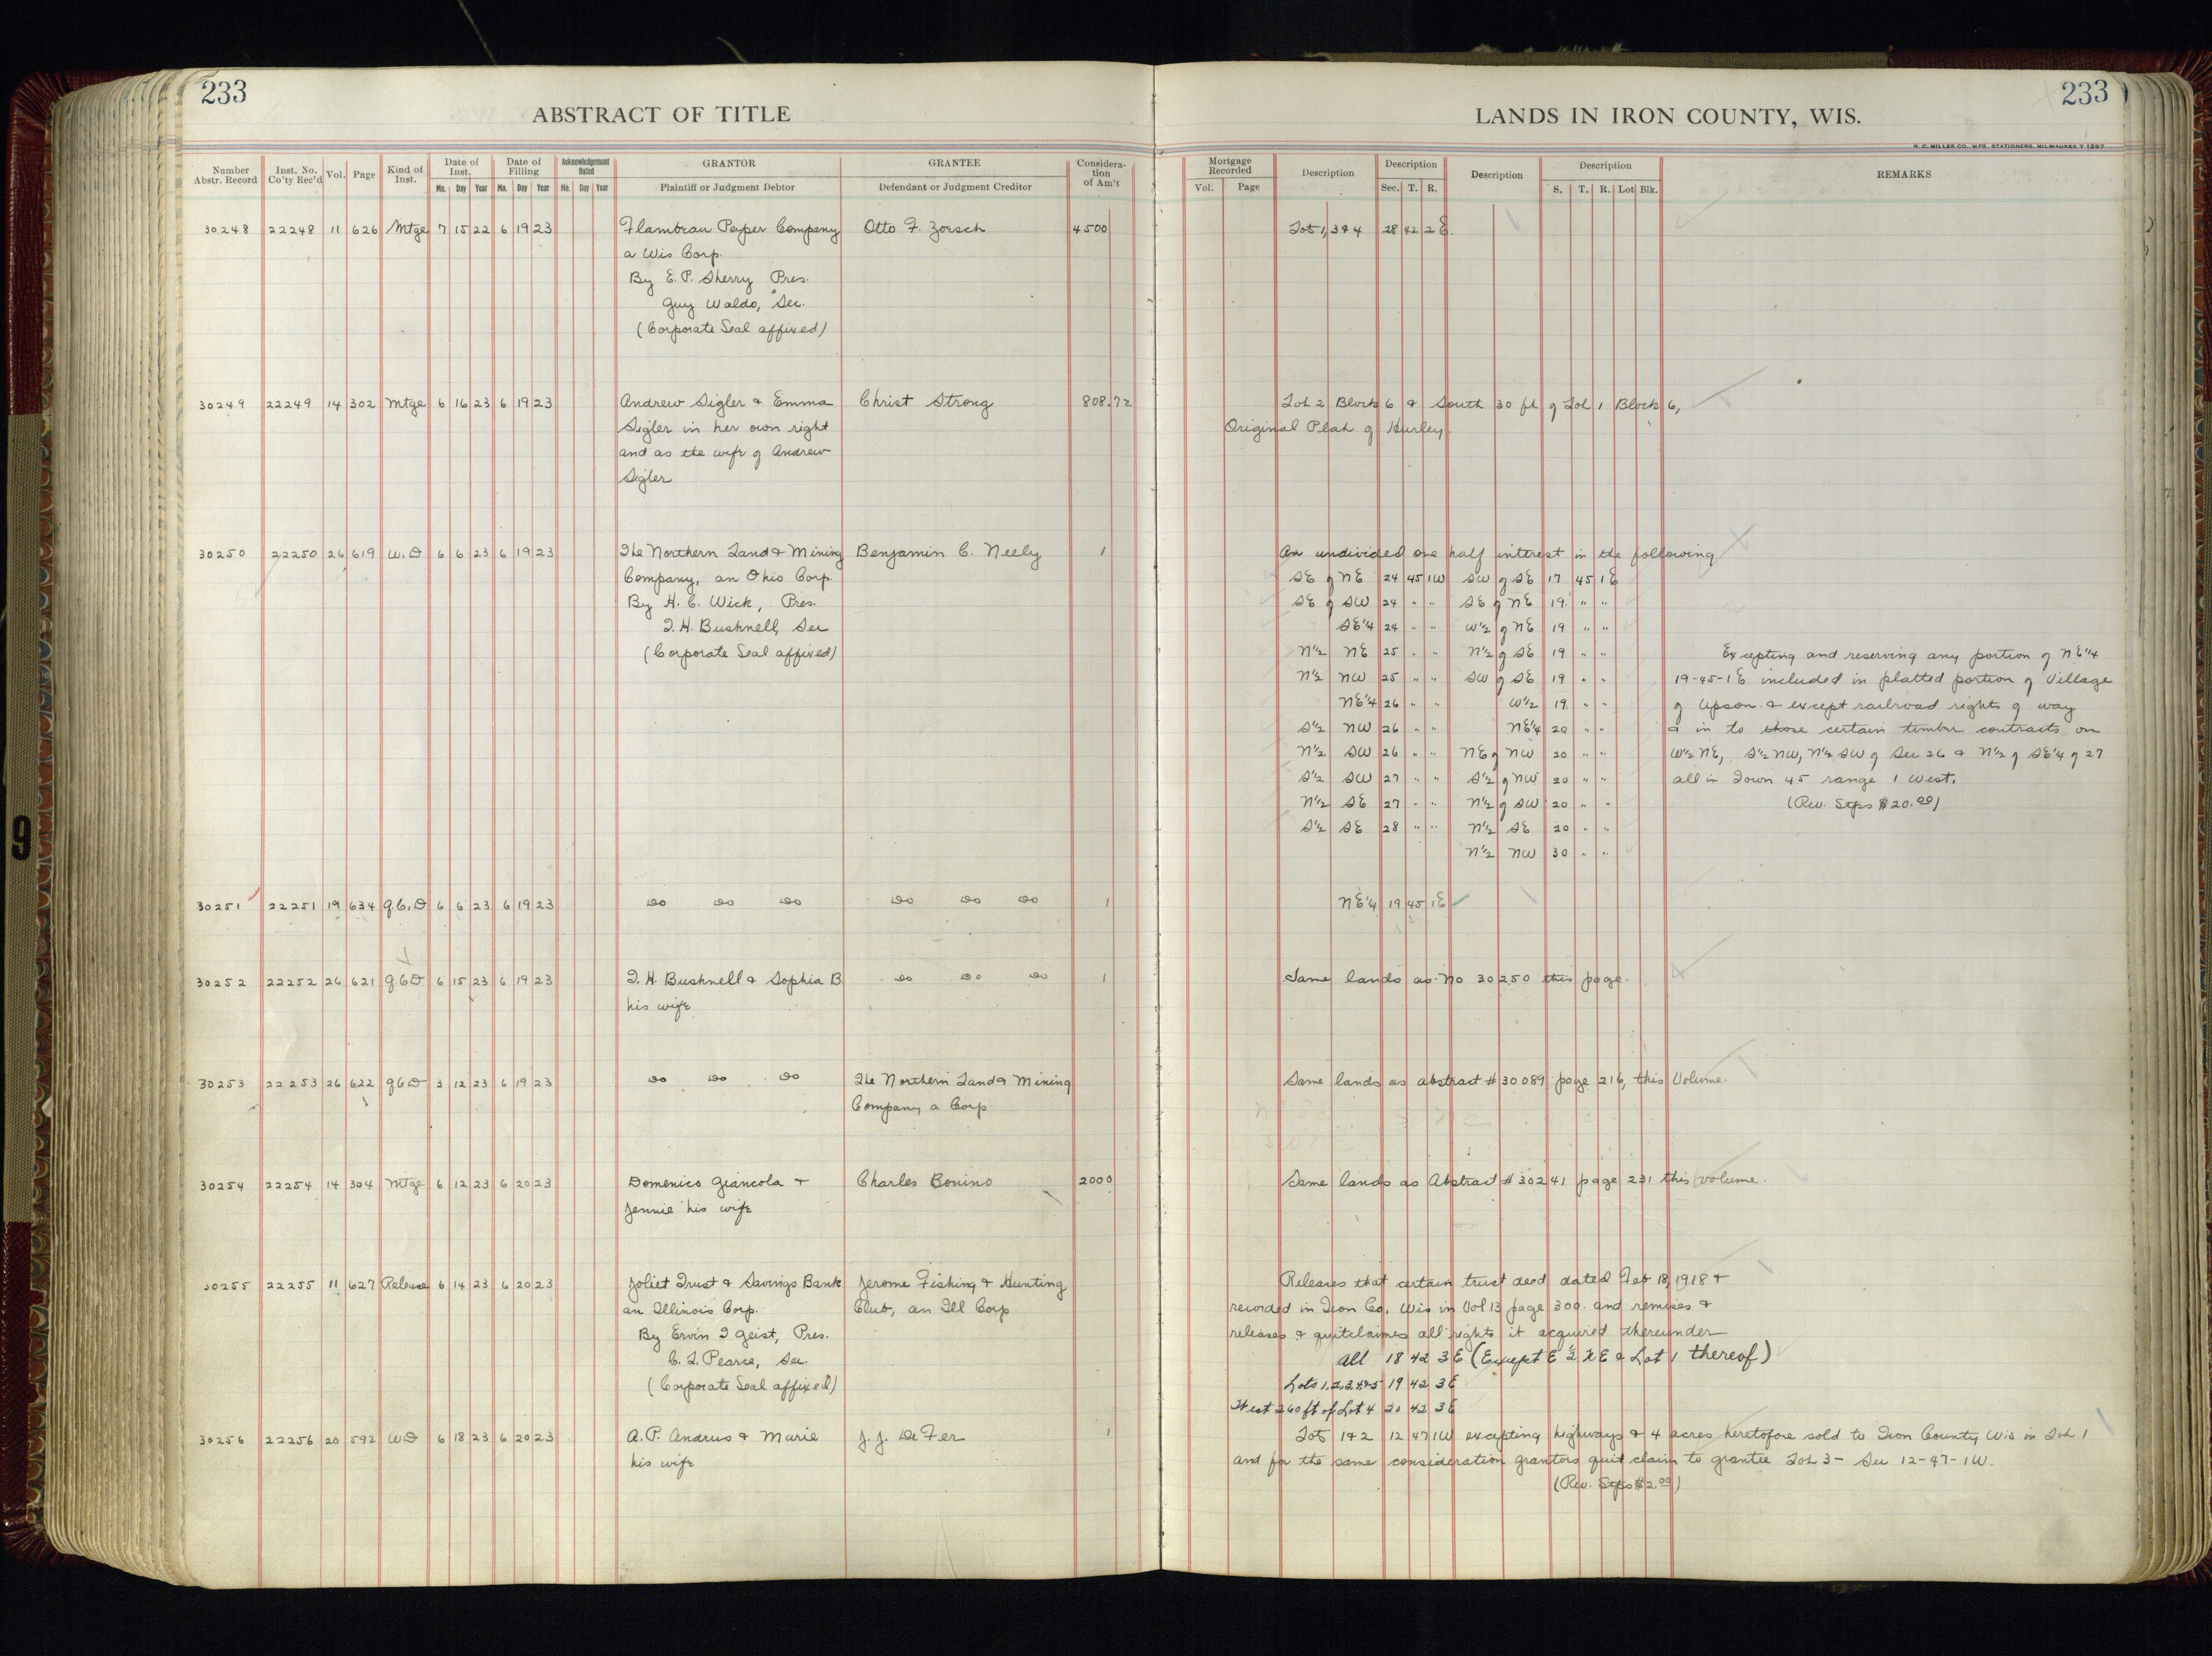 233
ABSTRACT OF TITLE
Number Abstr. Record
Inst. No. Co'ty Rec'd
Vol.
Page
Kind of Inst.
Date of Inst.
Mo. Day Year
Date of Filling
Mo. Day Year
Acknowledgement Dated
Mo. Day Year
GRANTOR
Plaintiff or Judgment Debtor
GRANTEE
Defendant or Judgment Creditor
Considera-tion of Am't
30248 22248 11 626 Mtge 7 15 22 6 19 23 Flambeau Paper Company Otto F. Zoesch 4500
a Wis Corp.
By E.P. Sherry Pres.
Guy Waldo, Sec.
(Corporate Seal affixed)
30249 22249 14 302 Mtge 6 16 23 6 19 23 Andrew Sigler & Emma Christ Strong 808.72
Sigler in her own right
and as the wife of Andrew
Sigler
30250 22250 26 619 W.D 6 6 23 6 19 23 The Northern Land & Mining Benjamin C. Neely 1
Company, an Ohio Corp.
By H. C. Wick, Pres.
T. H. Bushnell, Sec
(Corporate Seal affixed)
30251 22251 19 634 Q.C.D 6 6 23 6 19 23 Do Do Do Do Do Do 1
30252 22252 26 621 QCD 6 15 23 6 19 23 T. H. Bushnell & Sophia B Do Do Do 1
his wife
30253 22253 26 622 QCD 3 12 23 6 19 23 Do Do Do The Northern Land & Mining
Company a Corp
30254 22254 14 304 Mtge 6 12 23 6 20 23 Domenico Giancola & Charles Bonino 2000
Jennie his wife
30255 22255 11 627 Release 6 14 23 6 20 23 Joliet Trust & Savings Bank Jerome Fishing & Hunting
an Illinois Corp. Club, an Ill Corp
By Ervin T Geist, Pres.
C. T. Pearce, Sec.
(Corporate Seal affixed)
30256 22256 20 592 WD 6 18 23 6 20 23 A. P. Andrus & Marie J. J. De Fer 1
his wife
233
LANDS IN IRON COUNTY, WIS.
H. C. MILLER CO., MFG. STATIONERS, MILWAUKEE
Mortgage Recorded
Vol. Page
Description
Description
Sec. T. R.
Description
Description
S. T. R. Lot Blk.
REMARKS
Lots 1, 3 & 4 28 42 2E.
Lot 2 Block 6 & South 30 ft of Lot 1 Block 6,
Original Plat of Hurley
An undivided one half interest in the following
SE of NE 24 45 1W SW of SE 17 45 1E
SE of SW 24 " " SE of NE 19 " "
SE1/4 24 " " W1/2 of NE 19 " "
N1/2 NE 25 " " N1/2 of SE 19 " " Excepting and reserving any portion of NE1/4
N1/2 NW 25 " " SW of SE 19 " " 19-45-1E included in platted portion of Village
NE1/4 26 " " W1/2 19 " " of Upson & except railroad rights of way
S1/2 NW 26 " " NE1/4 20 " " & in to those certain timber contracts on
N1/2 SW 26 " " NE of NW 20 " " W1/2 NE, S1/2 NW, N1/2 SW of Sec 26 & N1/2 of SE1/4 of 27
S1/2 SW 27 " " S1/2 of NW 20 " " all in Town 45 range 1 West.
N1/2 SE 27 " " N1/2 of SW 20 " " (Rev. Stps $20.00)
S1/2 SE 28 " " N1/2 SE 20 " "
N1/2 NW 30 " "
NE1/4 19 45 1E
Same lands as No 30250 this page.
Same lands as abstract # 30089 page 216, this Volume.
Same lands as Abstract # 30241 page 231 this volume.
Releases that certain trust deed dated Feb 18, 1918 &
recorded in Iron Co, Wis in Vol 13 page 300. and remises &
releases & quitclaims all rights it acquired thereunder
All 18 42 3E (Except E 1/2 NE & Lot 1 thereof)
Lots 1,2,3,4&5 19 42 3E
West 260 ft of Lot 4 20 42 3E
Lots 1&2 12 47 1W excepting highways & 4 acres heretofore sold to Iron County Wis in Lot 1
and for the same consideration grantors quit claim to grantee Lot 3 - Sec 12-47-1W.
(Rev. Stps $2.00)
9